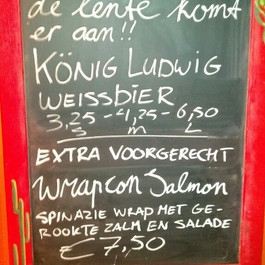 de lente komt
er aan!!
KÖNIG LUDWIG
WEISSBIER
3,25 - 4,25 - 6,50
S M L
EXTRA VOORGERECHT
Wrap con Salmon
SPINAZIE WRAP MET GE-
ROOKTE ZALM EN SALADE
€7,50